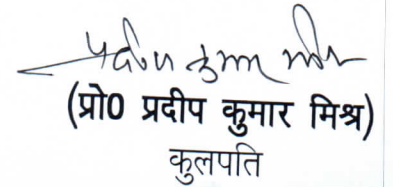 प्रदीप कुमार मिश्र
(प्रो0 प्रदीप कुमार मिश्र)
कुलपति